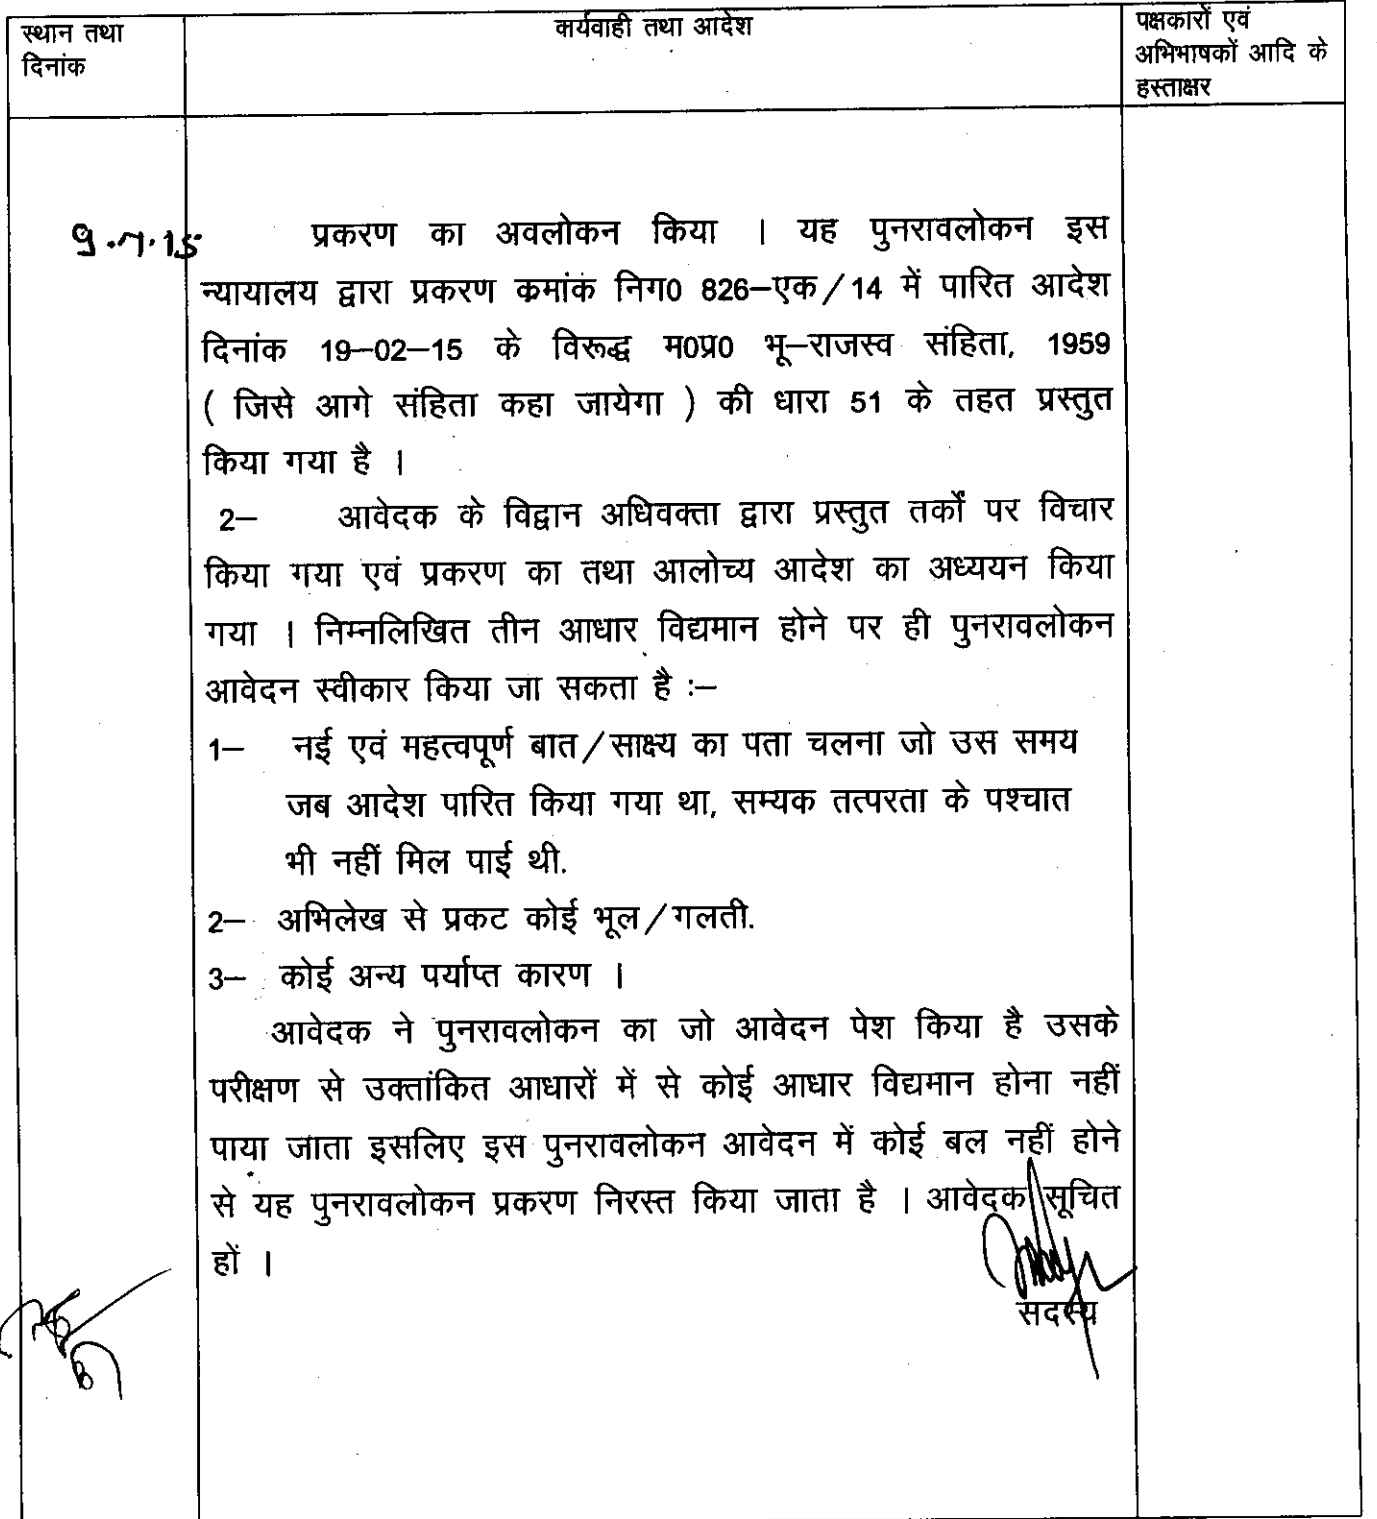 स्थान तथा
दिनांक
कार्यवाही तथा आदेश
पक्षकारों एवं
अभिभाषकों आदि के
हस्ताक्षर
9.7.15
प्रकरण का अवलोकन किया । यह पुनरावलोकन इस
न्यायालय द्वारा प्रकरण कमांक निग0 826–एक/14 में पारित आदेश
दिनांक 19–02–15 के विरूद्ध म0प्र0 भू–राजस्व संहिता, 1959
( जिसे आगे संहिता कहा जायेगा ) की धारा 51 के तहत प्रस्तुत
किया गया है ।
2– आवेदक के विद्वान अधिवक्ता द्वारा प्रस्तुत तर्कों पर विचार
किया गया एवं प्रकरण का तथा आलोच्य आदेश का अध्ययन किया
गया । निम्नलिखित तीन आधार विद्यमान होने पर ही पुनरावलोकन
आवेदन स्वीकार किया जा सकता है :–
1– नई एवं महत्वपूर्ण बात/साक्ष्य का पता चलना जो उस समय
जब आदेश पारित किया गया था, सम्यक तत्परता के पश्चात
भी नहीं मिल पाई थी.
2– अभिलेख से प्रकट कोई भूल/गलती.
3– कोई अन्य पर्याप्त कारण ।
आवेदक ने पुनरावलोकन का जो आवेदन पेश किया है उसके
परीक्षण से उक्तांकित आधारों में से कोई आधार विद्यमान होना नहीं
पाया जाता इसलिए इस पुनरावलोकन आवेदन में कोई बल नहीं होने
से यह पुनरावलोकन प्रकरण निरस्त किया जाता है । आवेदक सूचित
हों ।
सदस्य